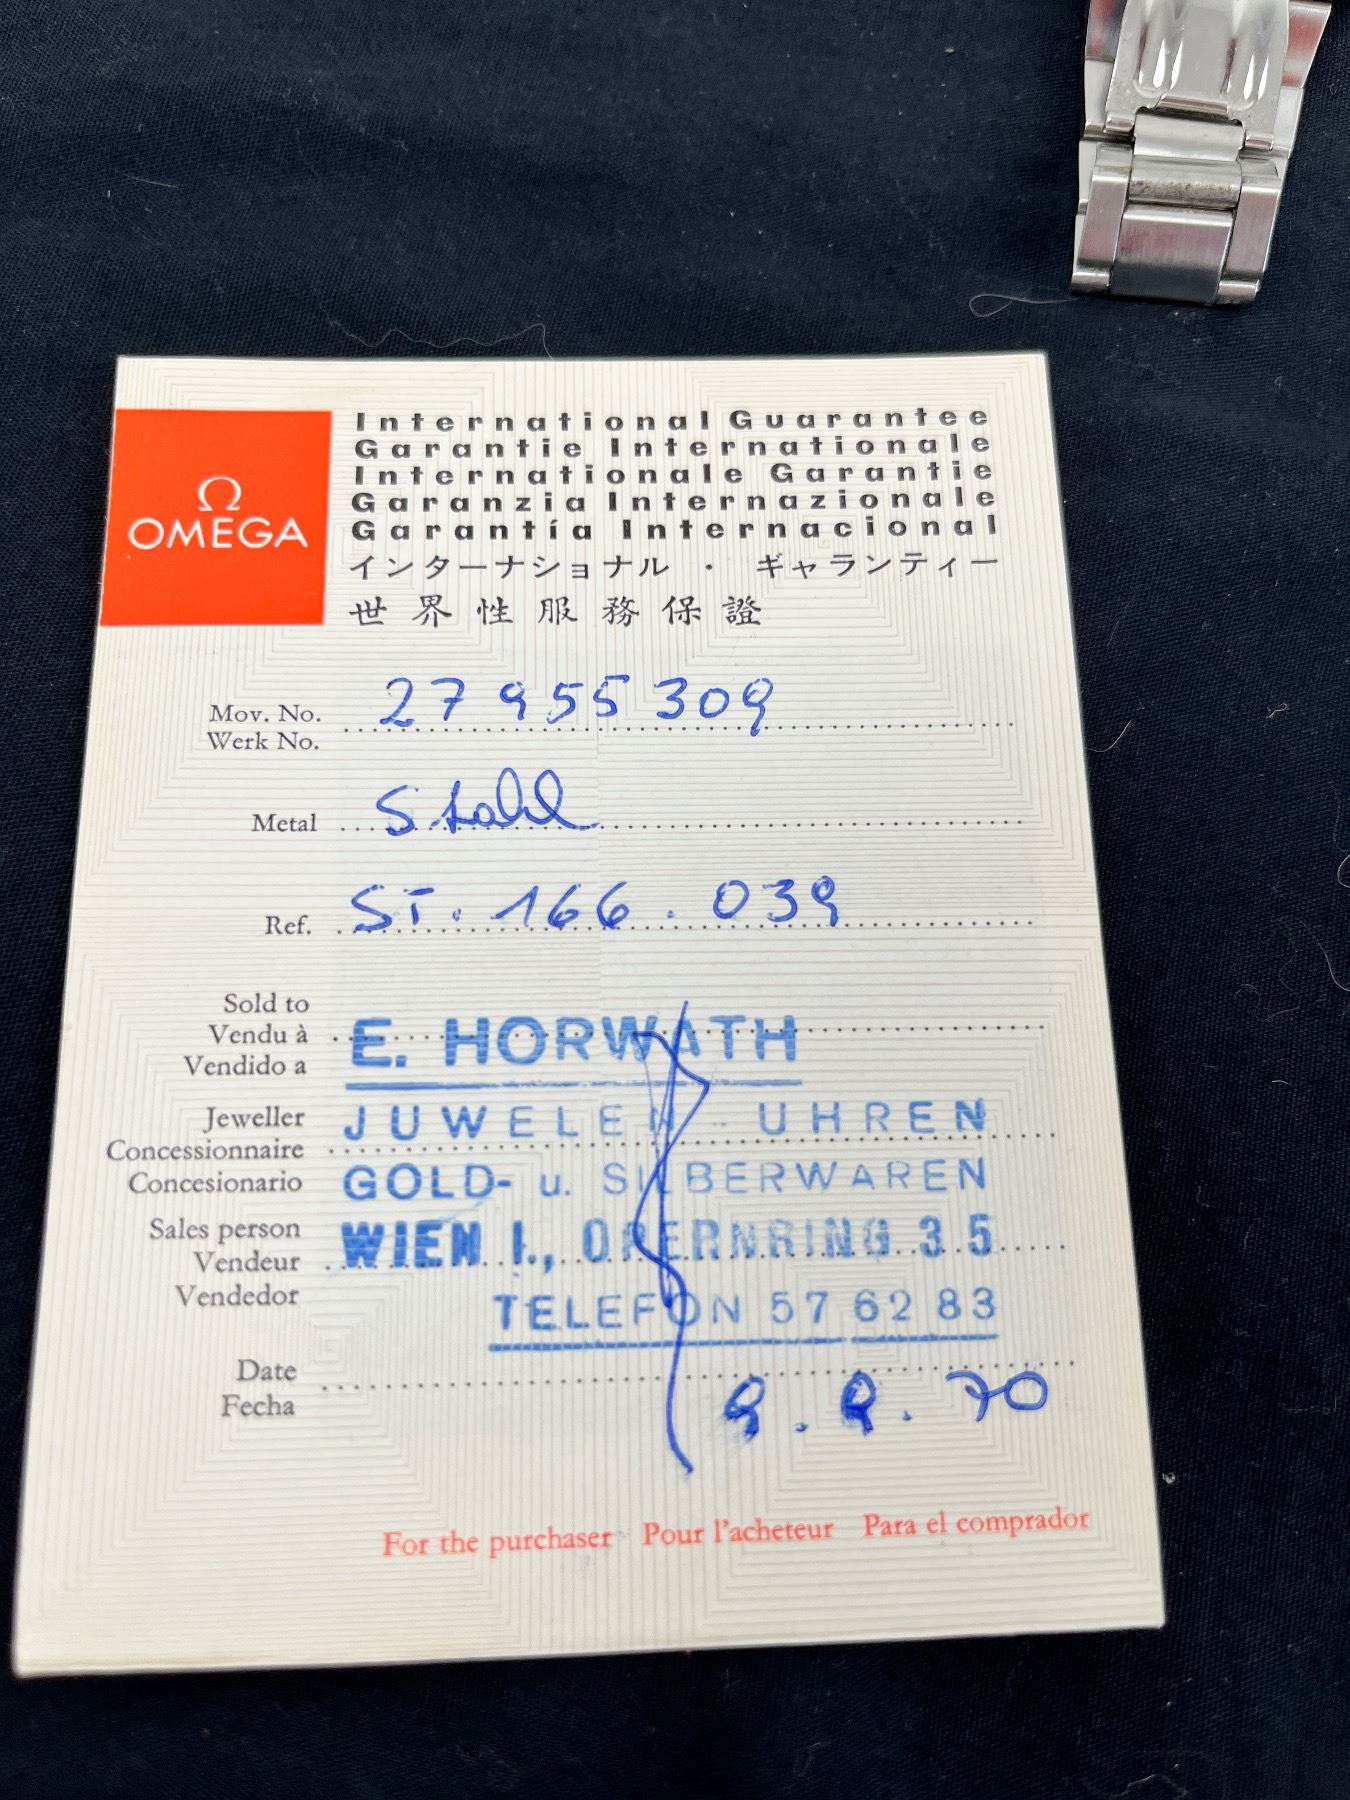 International Guarantee
Garantie Internationale
Internationale Garantie
Garanzia Internazionale
Garantía Internacional
インターナショナル ・ ギャランティー
世界性服務保證
Ω
OMEGA
Mov. No. 27 955 309
Werk No.
Metal Stahl
Ref. ST. 166. 039
Sold to
Vendu à
Vendido a
E. HORWATH
Jeweller
Concessionnaire
Concesionario
JUWELEN - UHREN
GOLD- u. SILBERWAREN
Sales person
Vendeur
Vendedor
WIEN I., OPERNRING 35
TELEFON 57 62 83
Date
Fecha
9. 9. 70
For the purchaser Pour l'acheteur Para el comprador